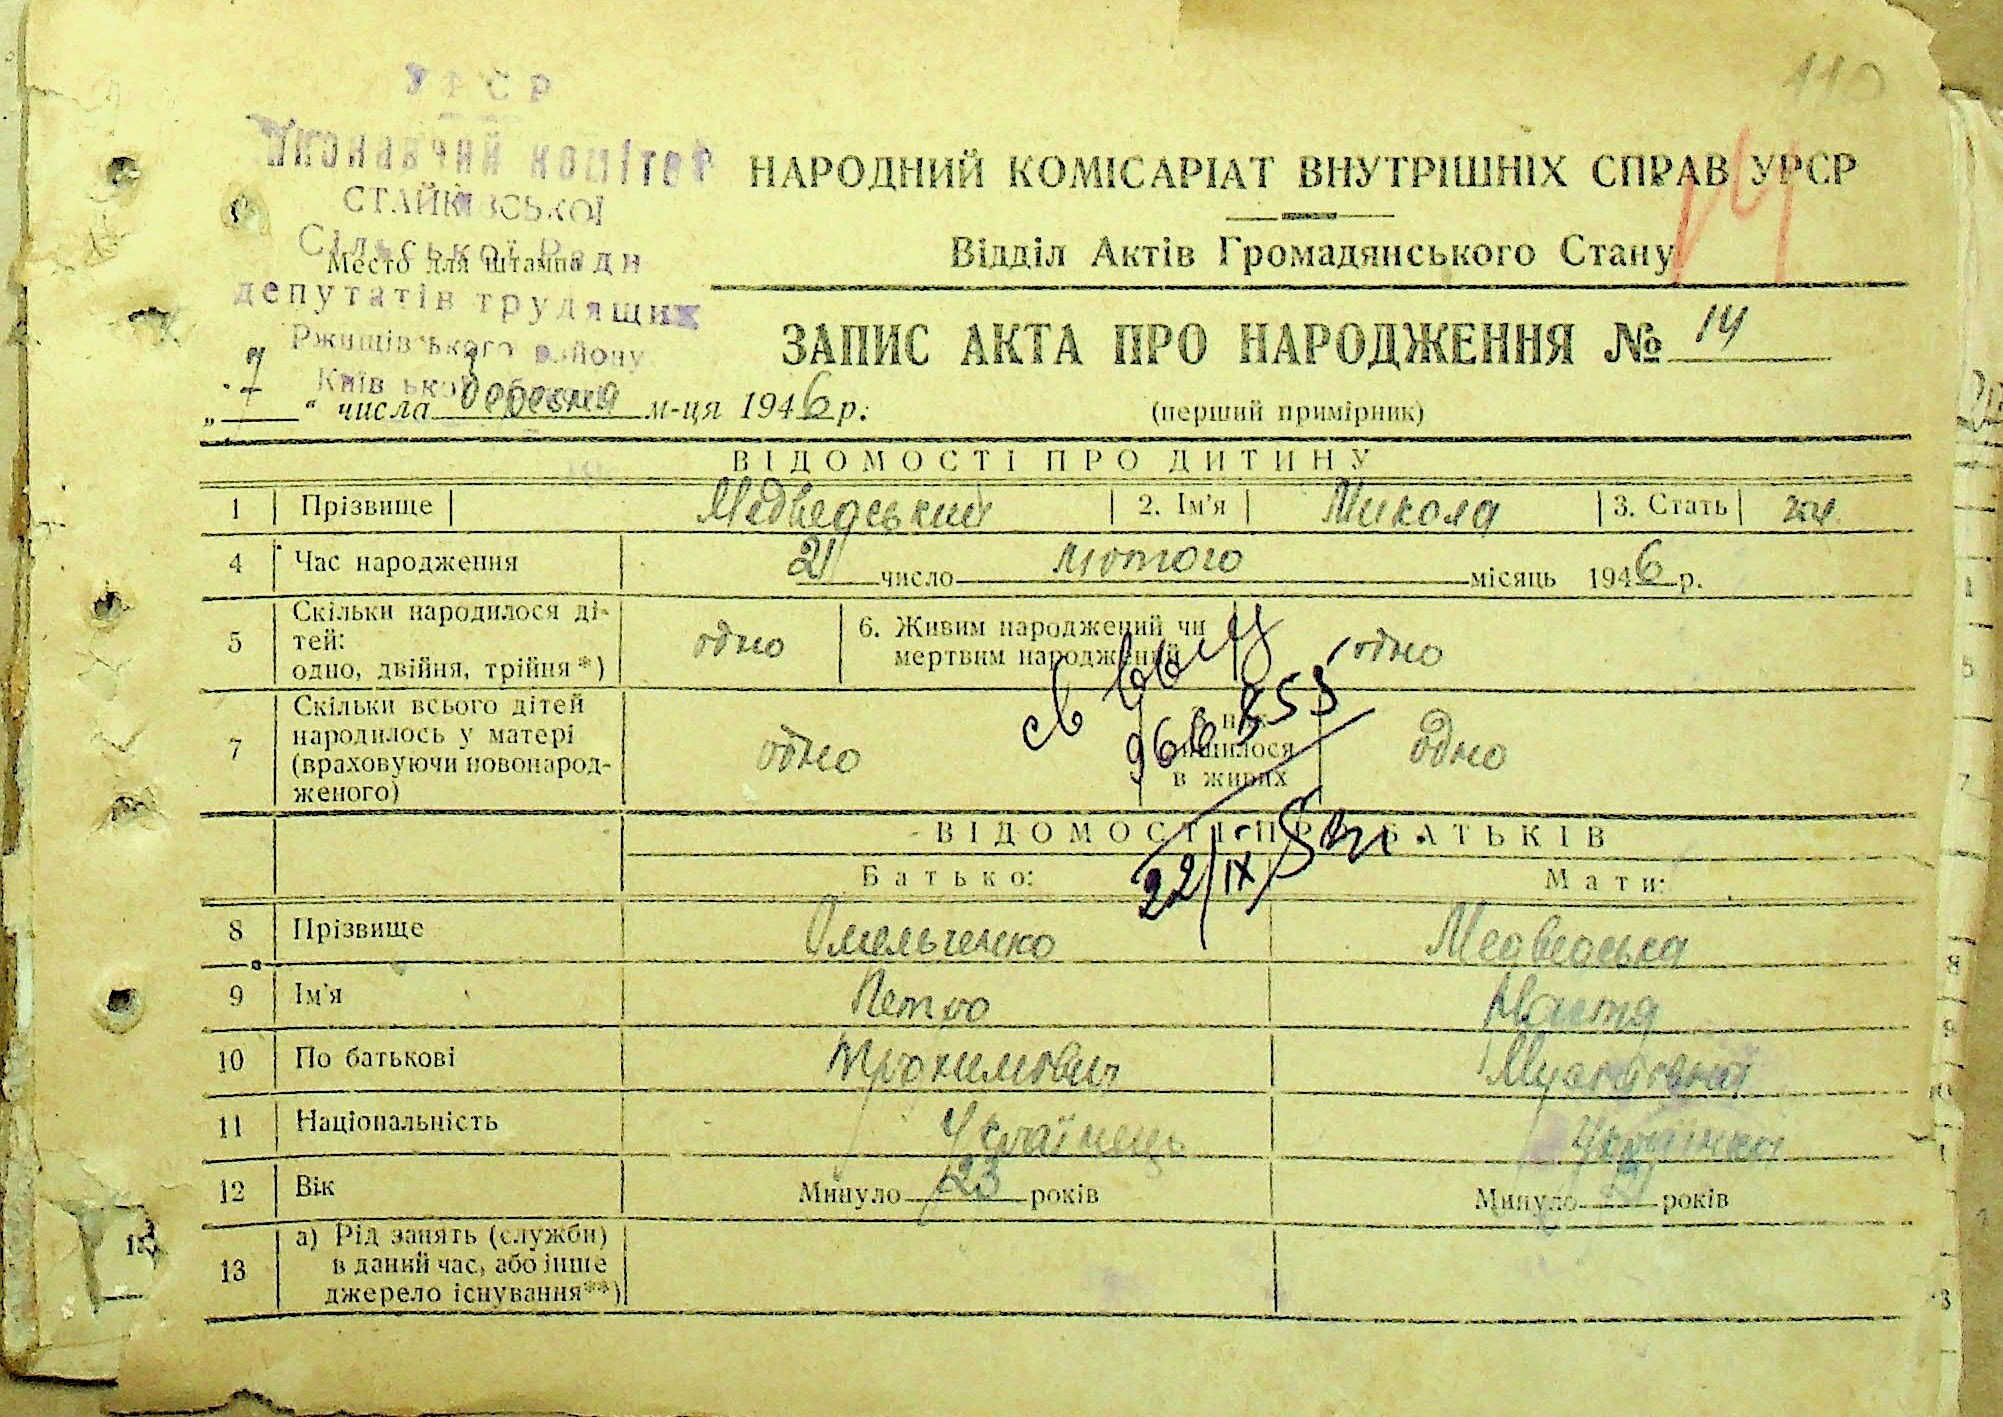 110
УРСР
Виконавчий комітет
СТАЙКІВСЬКОЇ
Сільської Ради
Место для штампа
депутатів трудящих
Ржищівського району
Київської області
НАРОДНИЙ КОМІСАРІАТ ВНУТРІШНІХ СПРАВ УРСР
Відділ Актів Громадянського Стану
ЗАПИС АКТА ПРО НАРОДЖЕННЯ № 14
„ 7 “ числа березня м-ця 1946 р.
(перший примірник)
ВІДОМОСТІ ПРО ДИТИНУ
1 Прізвище Медведський 2. Ім'я Микола 3. Стать чол.
4 Час народження 21 число лютого місяць 1946 р.
5 Скільки народилося ді-
тей:
одно, двійня, трійня*) одно
6. Живим народжений чи
мертвим народжений одно
7 Скільки всього дітей
народилось у матері
(враховуючи новонарод-
женого) одно
З них
лишилося
в живих одно
960855
22/IX
ВІДОМОСТІ ПРО БАТЬКІВ
Батько: Мати:
8 Прізвище Омельченко Медведська
9 Ім'я Петро Настя
10 По батькові Трохимович
11 Національність Українець Українка
12 Вік Минуло 23 років Минуло років
13 а) Рід занять (служби)
в даний час, або інше
джерело існування**)